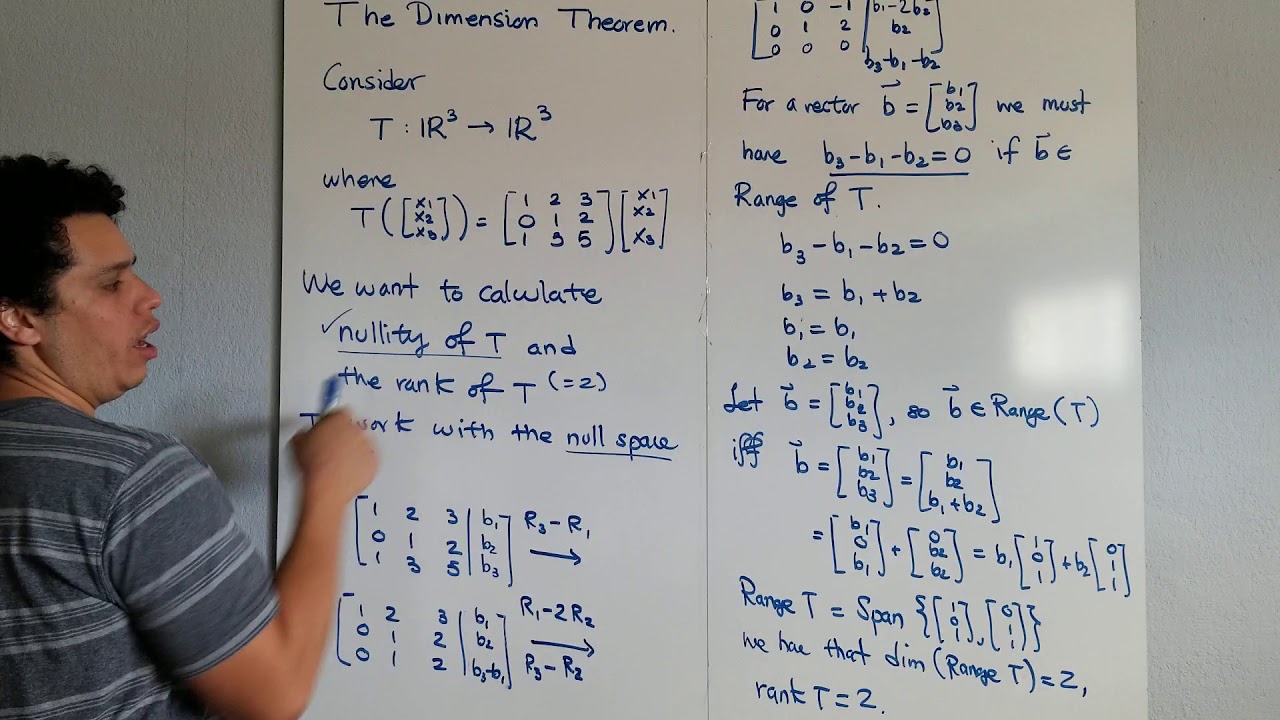 The Dimension Theorem.
Consider
T : ℝ³ → ℝ³
where
T([x₁ x₂ x₃]) = [1 2 3; 0 1 2; 1 3 5] [x₁ x₂ x₃]
We want to calculate
✓nullity of T and
the rank of T (=2)
work with the null space
[1 2 3 | b₁
0 1 2 | b₂
1 3 5 | b₃] R₃-R₁ →
[1 2 3 | b₁
0 1 2 | b₂
0 1 2 | b₃-b₁] R₁-2R₂ → R₃-R₂
[1 0 -1 | b₁-2b₂
0 1 2 | b₂
0 0 0 | b₃-b₁-b₂]
For a vector b⃗ = [b₁ b₂ b₃] we must
have b₃-b₁-b₂=0 if b⃗ ∈
Range of T.
b₃-b₁-b₂=0
b₃ = b₁+b₂
b₁ = b₁
b₂ = b₂
Let b⃗ = [b₁ b₂ b₃], so b⃗ ∈ Range(T)
iff b⃗ = [b₁ b₂ b₃] = [b₁ b₂ b₁+b₂]
= [b₁ 0 b₁] + [0 b₂ b₂] = b₁ [1 0 1] + b₂ [0 1 1]
Range T = Span {[1 0 1], [0 1 1]}
we hae that dim (Range T) = 2,
rank T = 2.